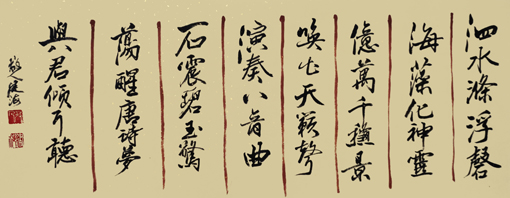 泗水滌浮磬
海藻化神靈
億萬千種景
喚出天籟聲
演奏八音曲
石震碧玉驚
蕩醒唐詩夢
與君傾耳聽